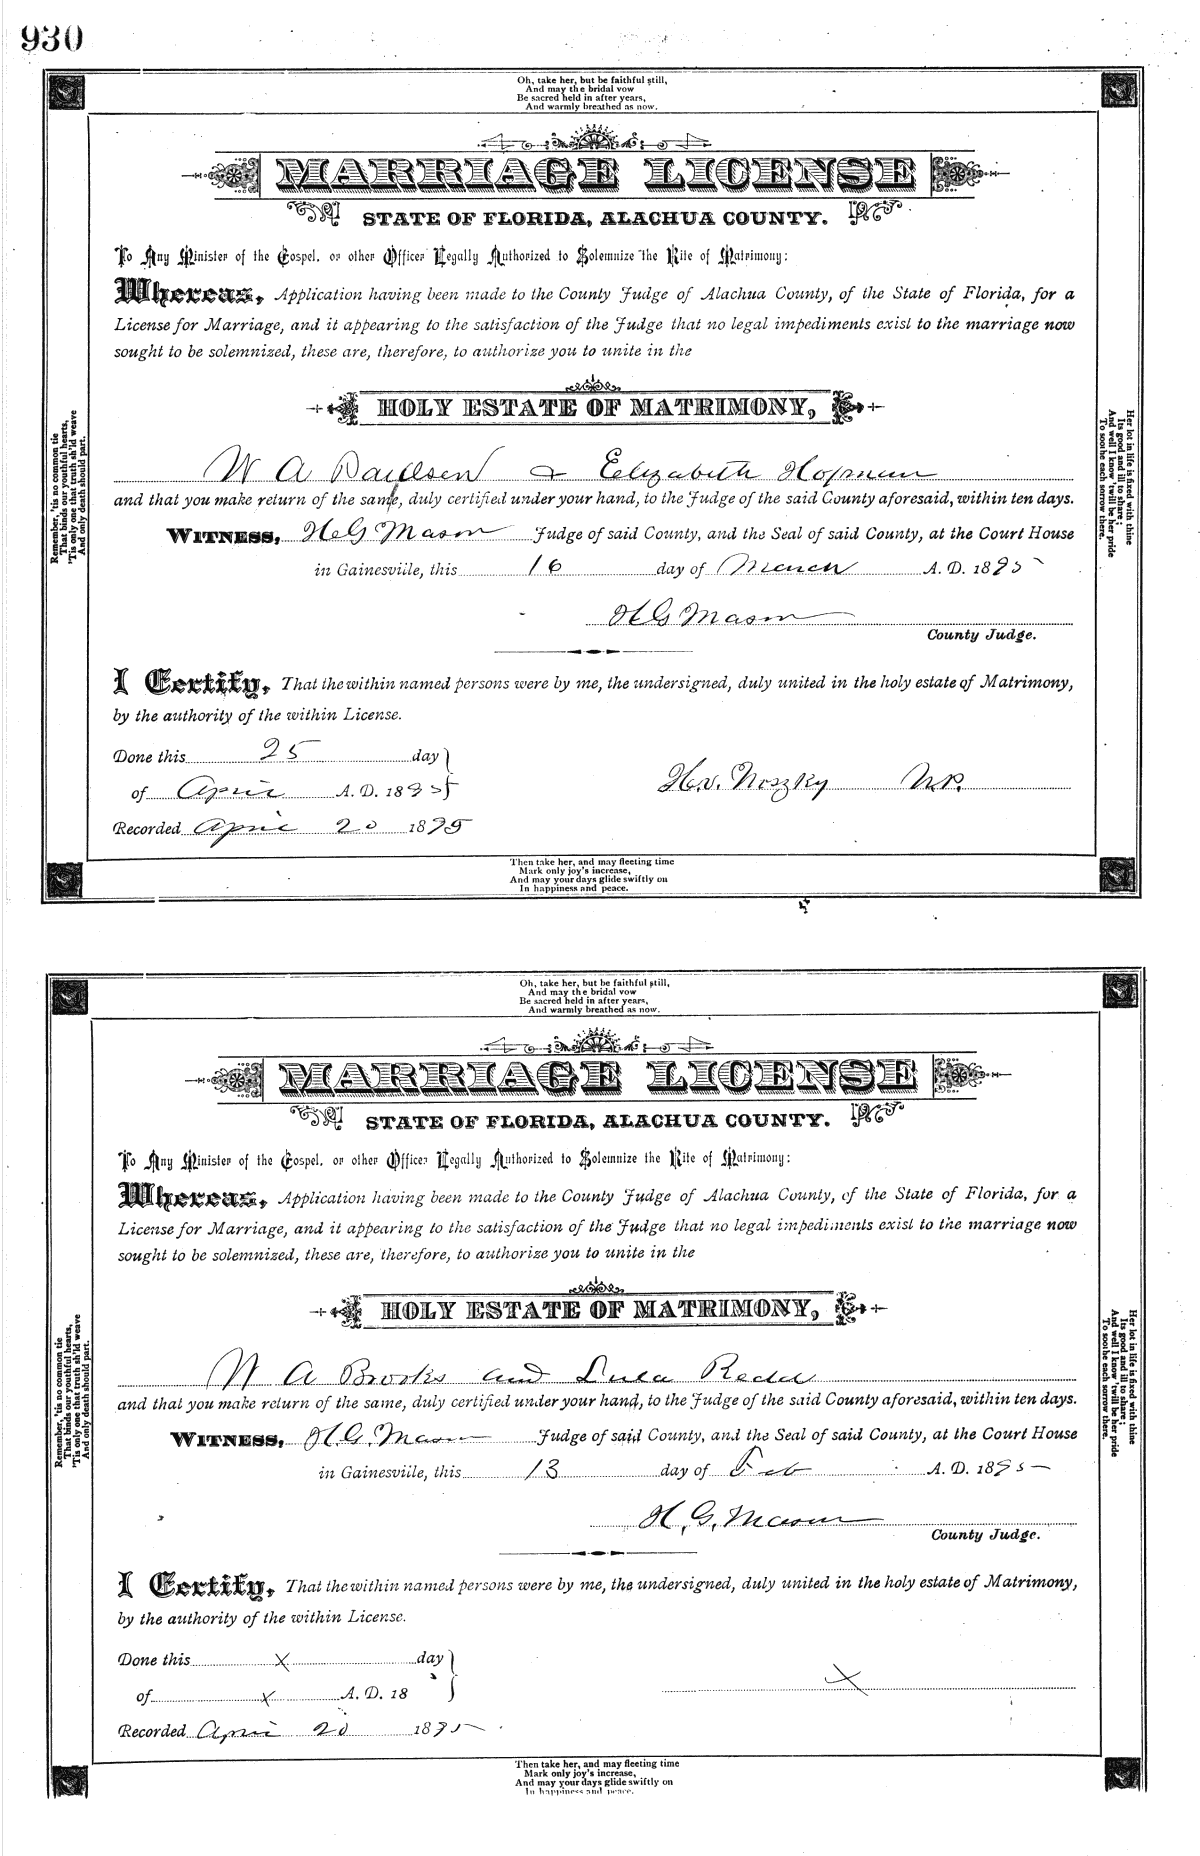 930
Oh, take her, but be faithful still,
And may the bridal vow
Be sacred held in after years,
And warmly breathed as now.
MARRIAGE LICENSE
STATE OF FLORIDA, ALACHUA COUNTY.
To Any Minister of the Gospel, or other Officer Legally Authorized to Solemnize the Rite of Matrimony:
Whereas, Application having been made to the County Judge of Alachua County, of the State of Florida, for a
License for Marriage, and it appearing to the satisfaction of the Judge that no legal impediments exist to the marriage now
sought to be solemnized, these are, therefore, to authorize you to unite in the
HOLY ESTATE OF MATRIMONY,
W A Paulsen & Elizabeth Hopman
and that you make return of the same, duly certified under your hand, to the Judge of the said County aforesaid, within ten days.
WITNESS, H G Mason Judge of said County, and the Seal of said County, at the Court House
in Gainesville, this 16 day of March A. D. 1895
H G Mason
County Judge.
I Certify, That the within named persons were by me, the undersigned, duly united in the holy estate of Matrimony,
by the authority of the within License.
Done this 25 day
of April A. D. 1895
H.v. Noszky N.P.
Recorded April 20 1895
Remember, 'tis no common tie
That binds our youthful hearts,
'Tis only one that truth sh'ld weave
And only death should part.
Her lot in life is fixed with thine
Its good and ill to share;
And well I know 'twill be her pride
To soothe each sorrow there.
Then take her, and may fleeting time
Mark only joy's increase,
And may your days glide swiftly on
In happiness and peace.
Oh, take her, but be faithful still,
And may the bridal vow
Be sacred held in after years,
And warmly breathed as now.
MARRIAGE LICENSE
STATE OF FLORIDA, ALACHUA COUNTY.
To Any Minister of the Gospel, or other Officer Legally Authorized to Solemnize the Rite of Matrimony:
Whereas, Application having been made to the County Judge of Alachua County, of the State of Florida, for a
License for Marriage, and it appearing to the satisfaction of the Judge that no legal impediments exist to the marriage now
sought to be solemnized, these are, therefore, to authorize you to unite in the
HOLY ESTATE OF MATRIMONY,
W A Brooks and Lula Redd
and that you make return of the same, duly certified under your hand, to the Judge of the said County aforesaid, within ten days.
WITNESS, H. G. Mason Judge of said County, and the Seal of said County, at the Court House
in Gainesville, this 13 day of Feb A. D. 1895
H. G. Mason
County Judge.
I Certify, That the within named persons were by me, the undersigned, duly united in the holy estate of Matrimony,
by the authority of the within License.
Done this X day
of X A. D. 18
X
Recorded April 20 1895
Remember, 'tis no common tie
That binds our youthful hearts,
'Tis only one that truth sh'ld weave
And only death should part.
Her lot in life is fixed with thine
Its good and ill to share;
And well I know 'twill be her pride
To soothe each sorrow there.
Then take her, and may fleeting time
Mark only joy's increase,
And may your days glide swiftly on
In happiness and peace.